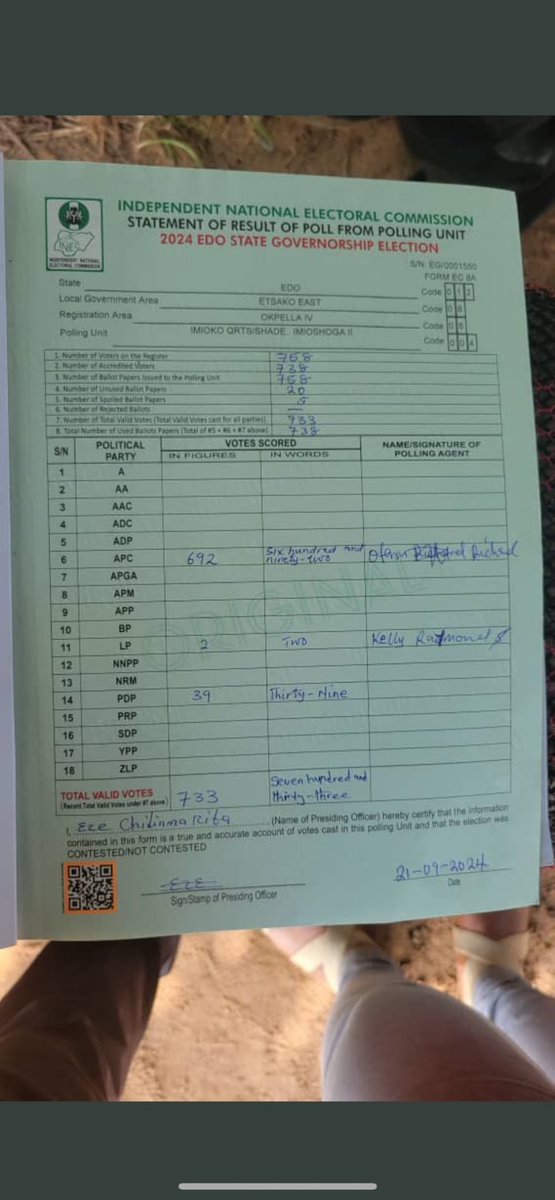 INEC
INDEPENDENT NATIONAL ELECTORAL COMMISSION
INDEPENDENT NATIONAL ELECTORAL COMMISSION
STATEMENT OF RESULT OF POLL FROM POLLING UNIT
2024 EDO STATE GOVERNORSHIP ELECTION
S/N. EG/0001550
FORM EC 8A
State EDO Code 0 1 2
Local Government Area ETSAKO EAST Code 0 8
Registration Area OKPELLA IV Code 0 8
Polling Unit IMIOKO QRTS/SHADE, IMIOSHOGA II Code 0 0 4
1. Number of Voters on the Register 758
2. Number of Accredited Voters 738
3. Number of Ballot Papers Issued to the Polling Unit 758
4. Number of Unused Ballot Papers 20
5. Number of Spoiled Ballot Papers 5
6. Number of Rejected Ballots —
7. Number of Total Valid Votes (Total Valid Votes cast for all parties) 733
8. Total Number of Used Ballots Papers (Total of #5 + #6 + #7 above) 738
S/N POLITICAL PARTY VOTES SCORED NAME/SIGNATURE OF POLLING AGENT
IN FIGURES IN WORDS
1 A
2 AA
3 AAC
4 ADC
5 ADP
6 APC 692 Six hundred and ninety-two Richael
7 APGA
8 APM
9 APP
10 BP
11 LP 2 Two Kelly Raymond
12 NNPP
13 NRM
14 PDP 39 Thirty-Nine
15 PRP
16 SDP
17 YPP
18 ZLP
ORIGINAL
TOTAL VALID VOTES 733 Seven hundred and
(Record Total Valid Votes under #7 above) thirty-three
I, Eze Chidinma Rita (Name of Presiding Officer) hereby certify that the information
contained in this form is a true and accurate account of votes cast in this polling Unit and that the election was
CONTESTED/NOT CONTESTED
EZE 21-09-2024
Sign/Stamp of Presiding Officer Date